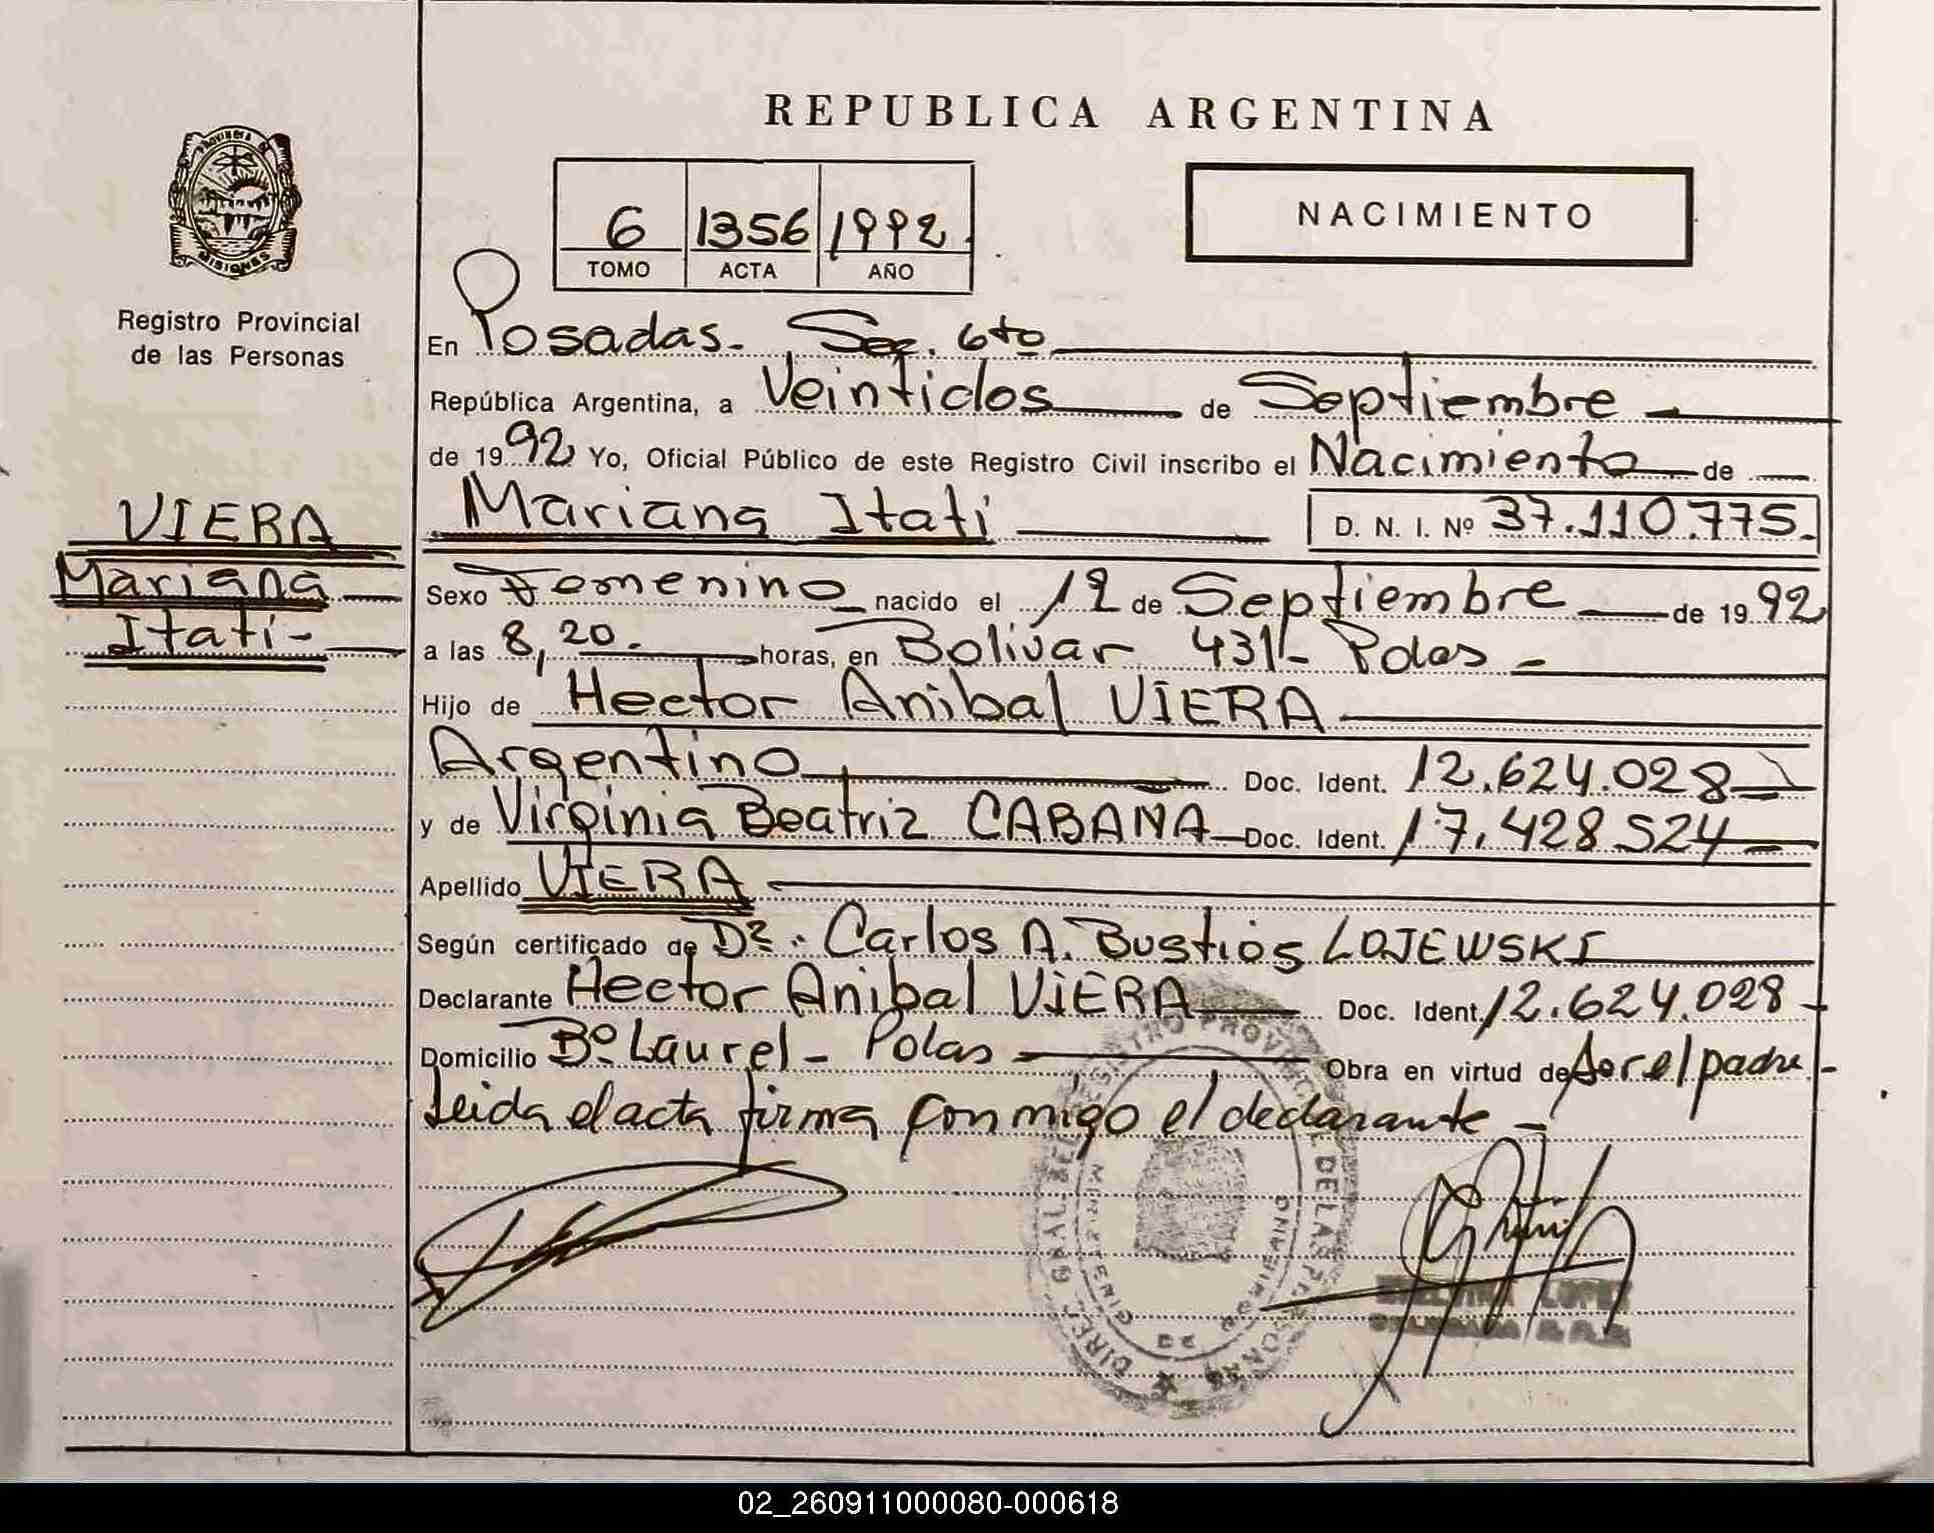 REPUBLICA ARGENTINA
PROVINCIA DE
MISIONES
Registro Provincial
de las Personas
6 1356 1992
TOMO ACTA AÑO
NACIMIENTO
En Posadas- Sec. 6to
República Argentina, a Veintidos de Septiembre
de 1992 Yo, Oficial Público de este Registro Civil inscribo el Nacimiento de
Mariana Itati D. N. I. Nº 37.110.775.
VIERA
Mariana
Itati-
Sexo Femenino nacido el 12 de Septiembre de 1992
a las 8,20. horas, en Bolivar 431- Pdas-
Hijo de Hector Anibal VIERA
Argentino Doc. Ident. 12.624.028
y de Virginia Beatriz CABANA Doc. Ident. 17.428524
Apellido VIERA
Según certificado de Dr. Carlos A. Bustios LOJEWSKI
Declarante Hector Anibal VIERA Doc. Ident. 12.624.028
Domicilio Bº Laurel- Pdas Obra en virtud de Ser el padre-
Leida el acta firma conmigo el declarante-
DIREC. GRAL. DEL REGISTRO PROVINCIAL DE LAS PERSONAS
MINISTERIO DE GOBIERNO
LOPEZ
02_260911000080-000618